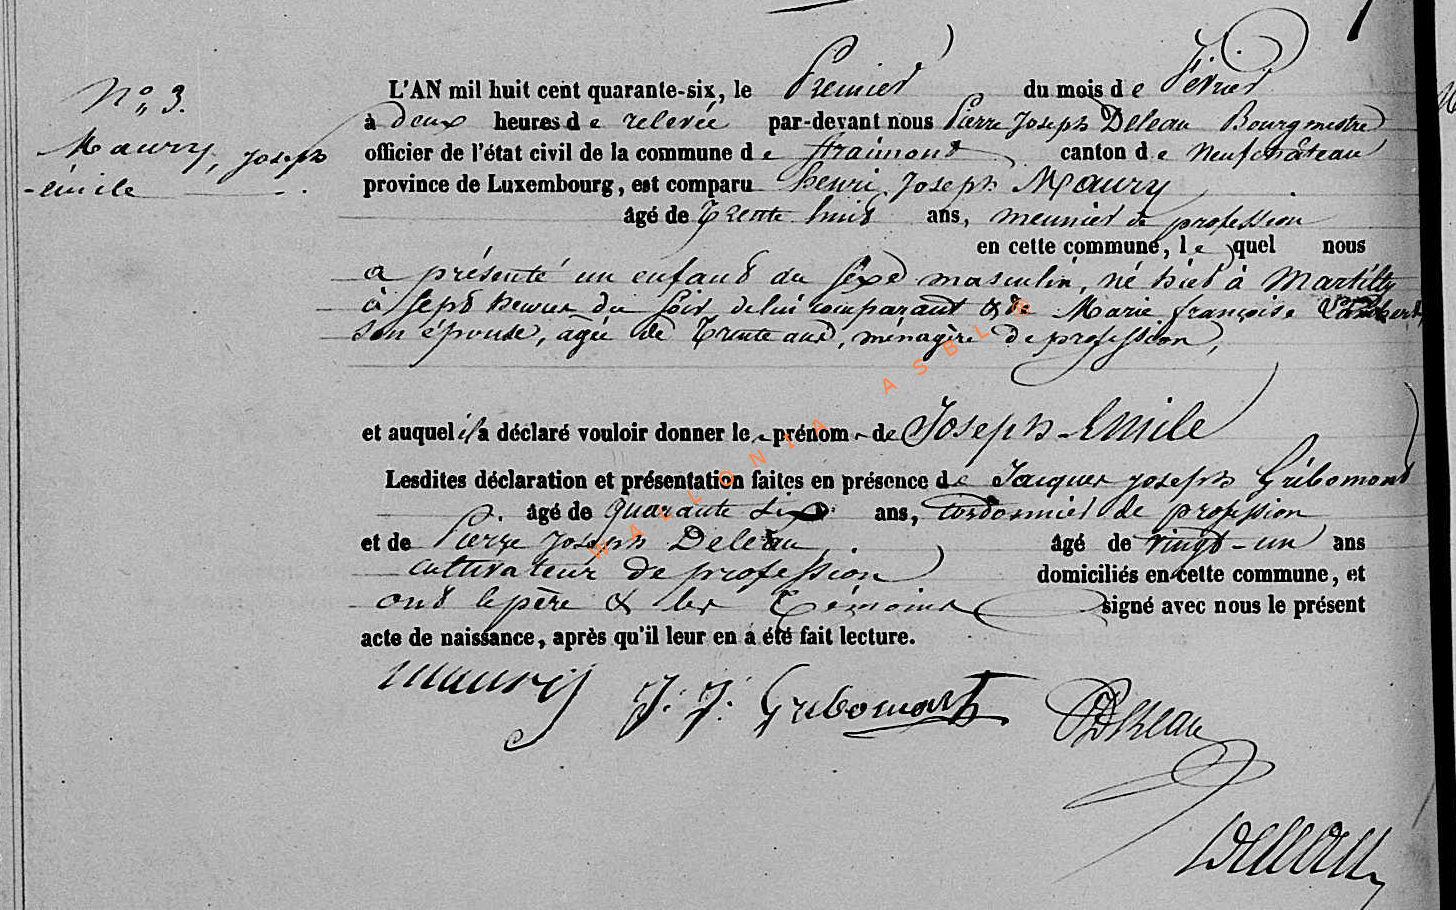 N° 3.
Maury, Joseph
-émile
L'AN mil huit cent quarante-six, le Premier du mois de Février
à deux heures de relevée par-devant nous Pierre Joseph Deleau Bourgmestre
officier de l'état civil de la commune de straimont canton de Neufchâteau
province de Luxembourg, est comparu henri Joseph Maury
âgé de Trente huit ans, meunier de profession
en cette commune, le quel nous
a présenté un enfant du sexe masculin, né hier à Martilly
à sept heures du soir de lui comparant & de Marie françoise
son épouse, agée de Trente ans, ménagère de profession,
et auquel il a déclaré vouloir donner le prénom de Joseph-Emile
Lesdites déclaration et présentation faites en présence de Jacques joseph Gribomont
âgé de quarante six ans, cordonnier de profession
et de Pierre Joseph Deleau âgé de vingt-un ans
cultivateur de profession domiciliés en cette commune, et
ont le père & les Témoins signé avec nous le présent
acte de naissance, après qu'il leur en a été fait lecture.
maury J. J. Gribomont PJDeleau
Deleau
WALLONIA ASBL